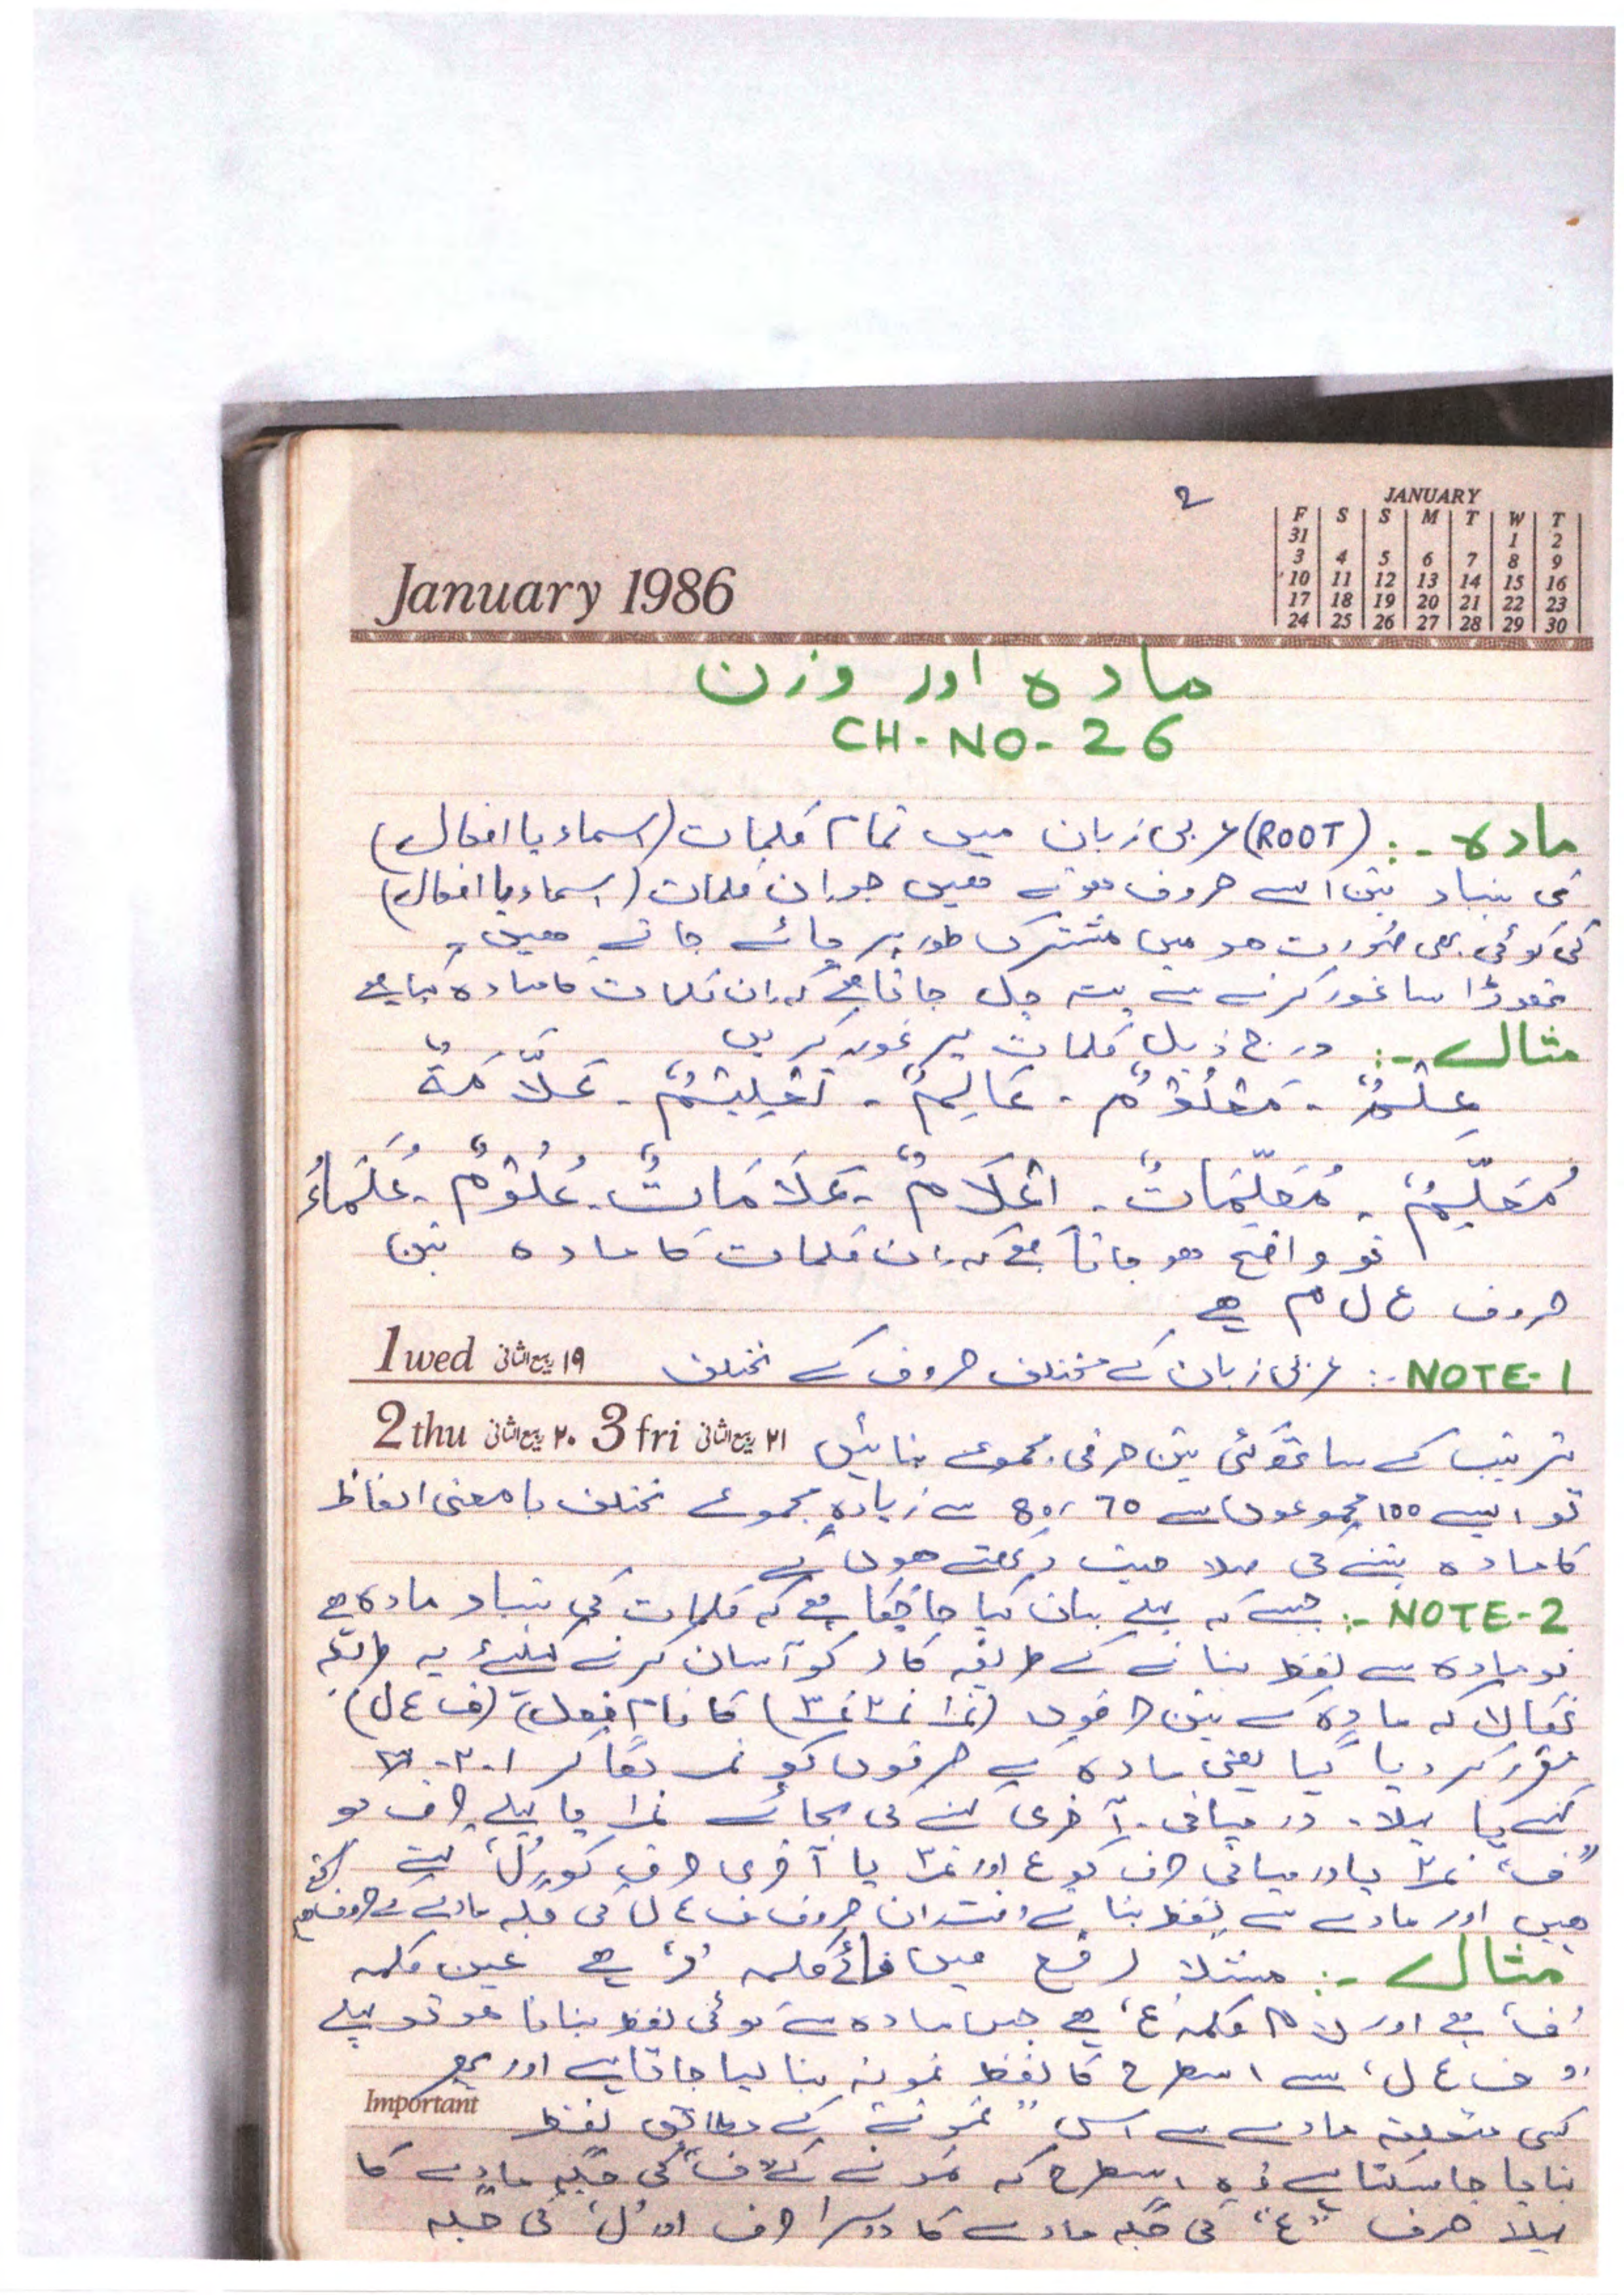 ۲
JANUARY
F S S M T W T
31 1 2
3 4 5 6 7 8 9
10 11 12 13 14 15 16
17 18 19 20 21 22 23
24 25 26 27 28 29 30
January 1986
مادہ اور وزن
CH-NO-26
مادہ :- (ROOT) عربی زبان میں تمام کلمات (اسماء یا افعال)
کی بنیاد تین ایسے حروف ہوتے ہیں جو ان کلمات (اسماء یا افعال)
کی کوئی بھی صورت ہو میں مشترک طور پر پائے جاتے ہیں۔
تھوڑا سا غور کرنے سے پتہ چل جاتا ہے کہ ان کلمات کا مادہ کیا ہے
مثال :- درج ذیل کلمات پر غور کریں
عِلْمٌ - مَعْلُوْمٌ - عَالِمٌ - تَعْلِیْمٌ - عَلَّامَةٌ
مُعَلِّمٌ - مُعَلِّمَاتٌ - اعْلَامٌ - عَلَامَاتٌ - عُلُوْمٌ - عُلَمَاءُ
تو واضح ہو جاتا ہے کہ ان کلمات کا مادہ تین
حروف ع ل م ہے
1 wed ۱۹ ربیع الثانی
NOTE-1 :- عربی زبان کے مختلف حروف کے مختلف
2 thu ۲۰ ربیع الثانی 3 fri ۲۱ ربیع الثانی
ترتیب کے ساتھ کئی تین حرفی مجموعے بنائیں
تو ایسے 100 مجموعوں سے 70 ، 80 سے زیادہ مجموعے مختلف بامعنی الفاظ
کا مادہ بننے کی صلاحیت رکھتے ہوں گے
NOTE-2 :- جیسے کہ پہلے بیان کیا جا چکا ہے کہ کلمات کی بنیاد مادہ ہے
تو مادہ سے لفظ بنانے کے طریقہ کار کو آسان کرنے کیلئے یہ طریقہ
نکالا کہ مادہ کے تین حرفوں (نمبر۱ نمبر۲ نمبر۳) کا نام فعل (ف ع ل)
مقرر کر دیا گیا یعنی مادہ کے حرفوں کو نمبر لگا کر ۱۔۲۔۳
کہنے یا پہلا۔ درمیانی۔ آخری کہنے کی بجائے نمبر۱ یا پہلے حرف کو
"ف" نمبر۲ یا درمیانی حرف کو ع اور نمبر۳ یا آخری حرف کو "ل" کہتے
ہیں اور مادے سے لفظ بناتے وقت ان حروف ف ع ل کی جگہ مادے کے حروف
مثال :- مثلاً رفع میں فائے کلمہ 'ر' ہے عین کلمہ
'ف' ہے اور لام کلمہ 'ع' ہے جس مادہ سے کوئی لفظ بنانا ہو تو پہلے
"ف ع ل" سے اسطرح کا لفظ نمونہ بنا لیا جاتا ہے اور پھر
Important
کسی متعلقہ مادے سے اس "نمونے" کے مطابق لفظ
بنایا جا سکتا ہے وہ اسطرح کہ نمونے کے "ف" کی جگہ مادے کا
پہلا حرف "ع" کی جگہ مادے کا دوسرا حرف اور 'ل' کی جگہ